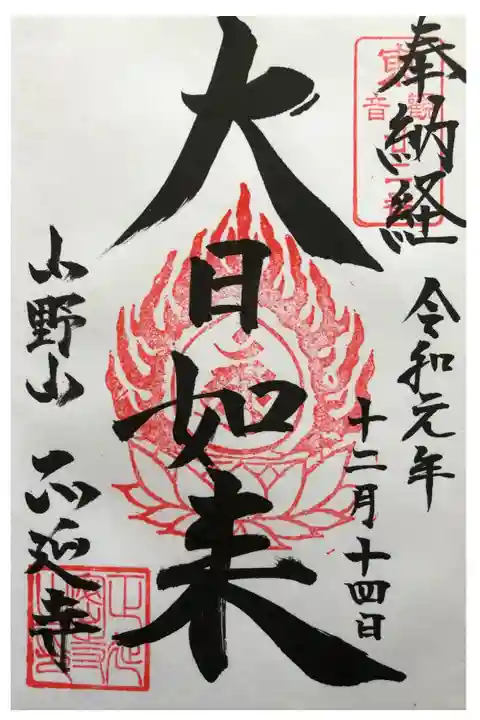 奉納経
令和元年
十二月十四日
大日如来
山野山 正延寺